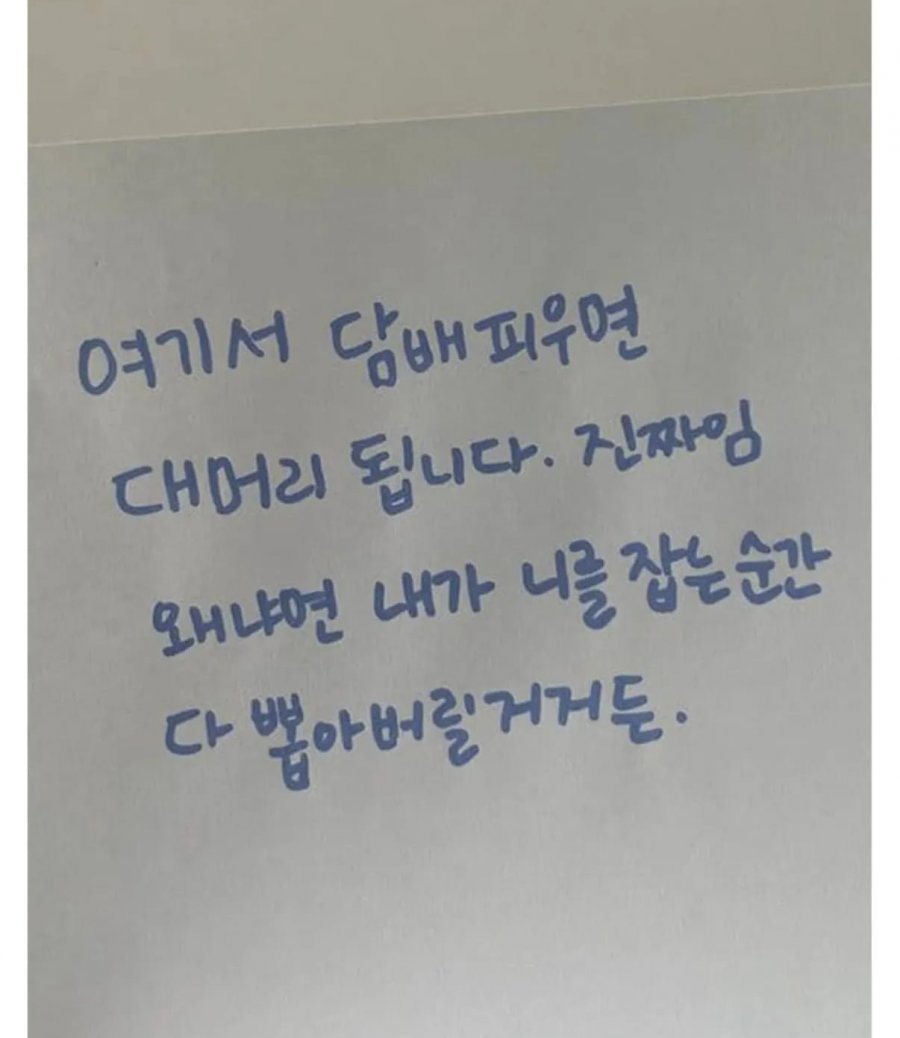 여기서 담배피우면
대머리 됩니다. 진짜임
왜냐면 내가 니를 잡는순간
다 뽑아버릴거거든.